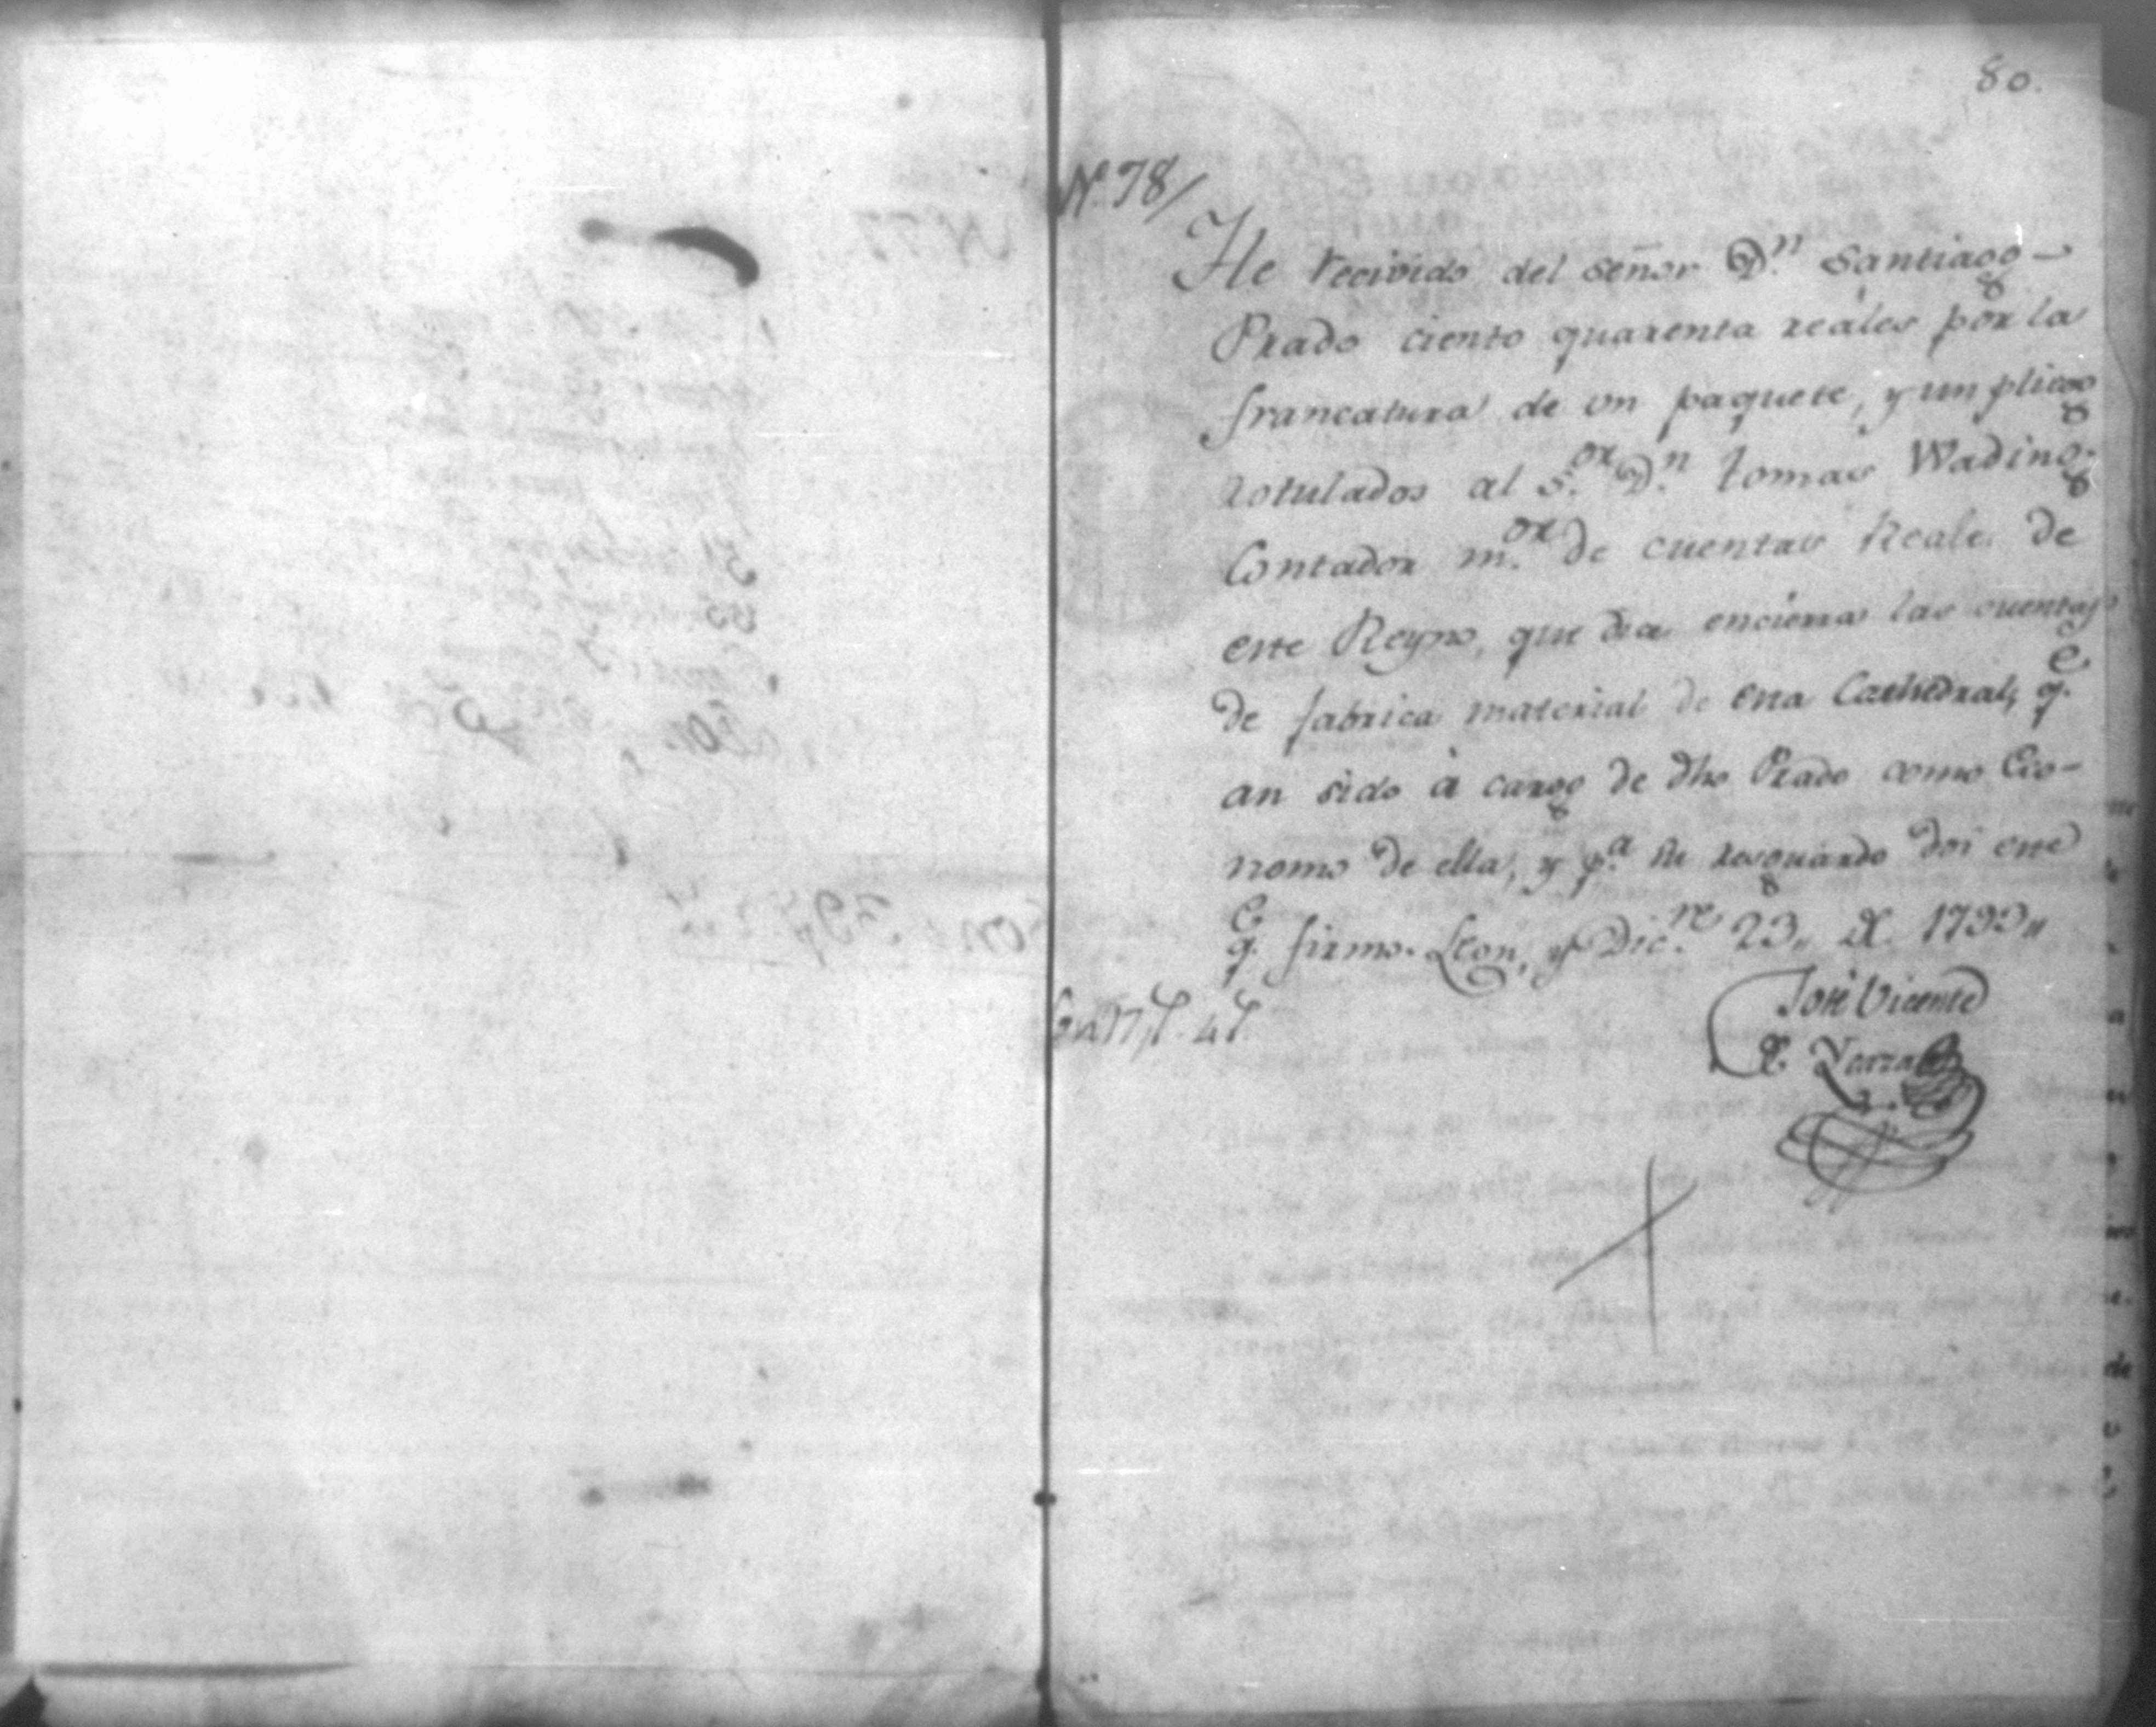 80.
N.º 78/
He recivido del señor D.n Santiago
Prado ciento quarenta reales por la
francatura de un paquete, y un pliego
rotulados al S.or D.n Tomas Wading
Contador m.or de cuentas Reales de
este Reyno, que encierra las cuentas
de fabrica material de esta Cathedral, q.e
an sido à cargo de dho Prado como Eco-
nomo de ella, y p.a su resguardo doi este
q.e firmo. Leon, y Dic.re 23,, de 179
José Vicente